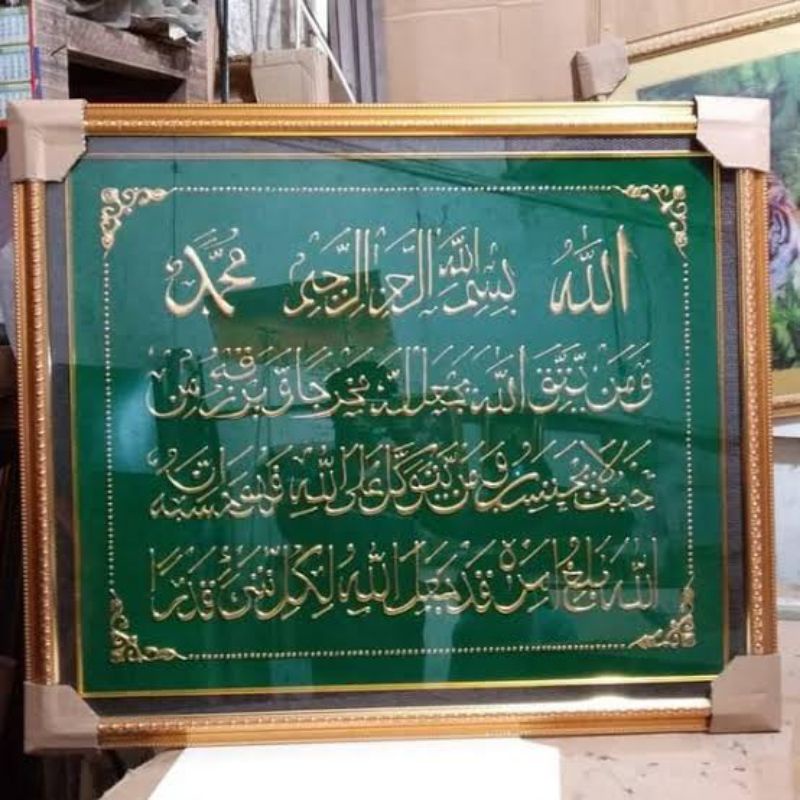 الله بِسْمِ اللَّهِ الرَّحْمَنِ الرَّحِيمِ مُحَمَّد
وَمَنْ يَتَّقِ اللَّهَ يَجْعَلْ لَهُ مَخْرَجًا وَيَرْزُقْهُ مِنْ
حَيْثُ لَا يَحْتَسِبُ وَمَنْ يَتَوَكَّلْ عَلَى اللَّهِ فَهُوَ حَسْبُهُ إِنَّ
اللَّهَ بَالِغُ أَمْرِهِ قَدْ جَعَلَ اللَّهُ لِكُلِّ شَيْءٍ قَدْرًا